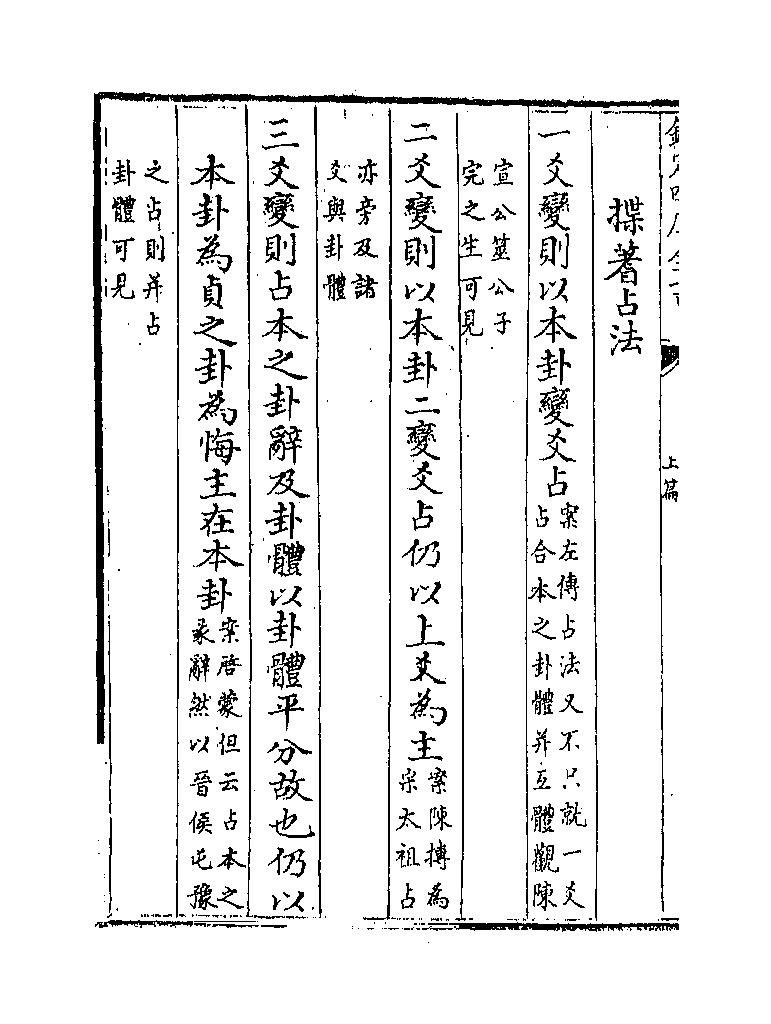 欽定四庫全書
上篇
揲蓍占法
一爻變則以本卦變爻占
案左傳占法又不只就一爻
占合本之卦體并互體觀陳
宣公筮公子
完之生可見
二爻變則以本卦二變爻占仍以上爻為主
案陳摶為
宋太祖占
亦旁及諸
爻與卦體
三爻變則占本之卦辭及卦體以卦體平分故也仍以
本卦為貞之卦為悔主在本卦
案啓蒙但云占本之
彖辭然以晉侯屯豫
之占則并占
卦體可見